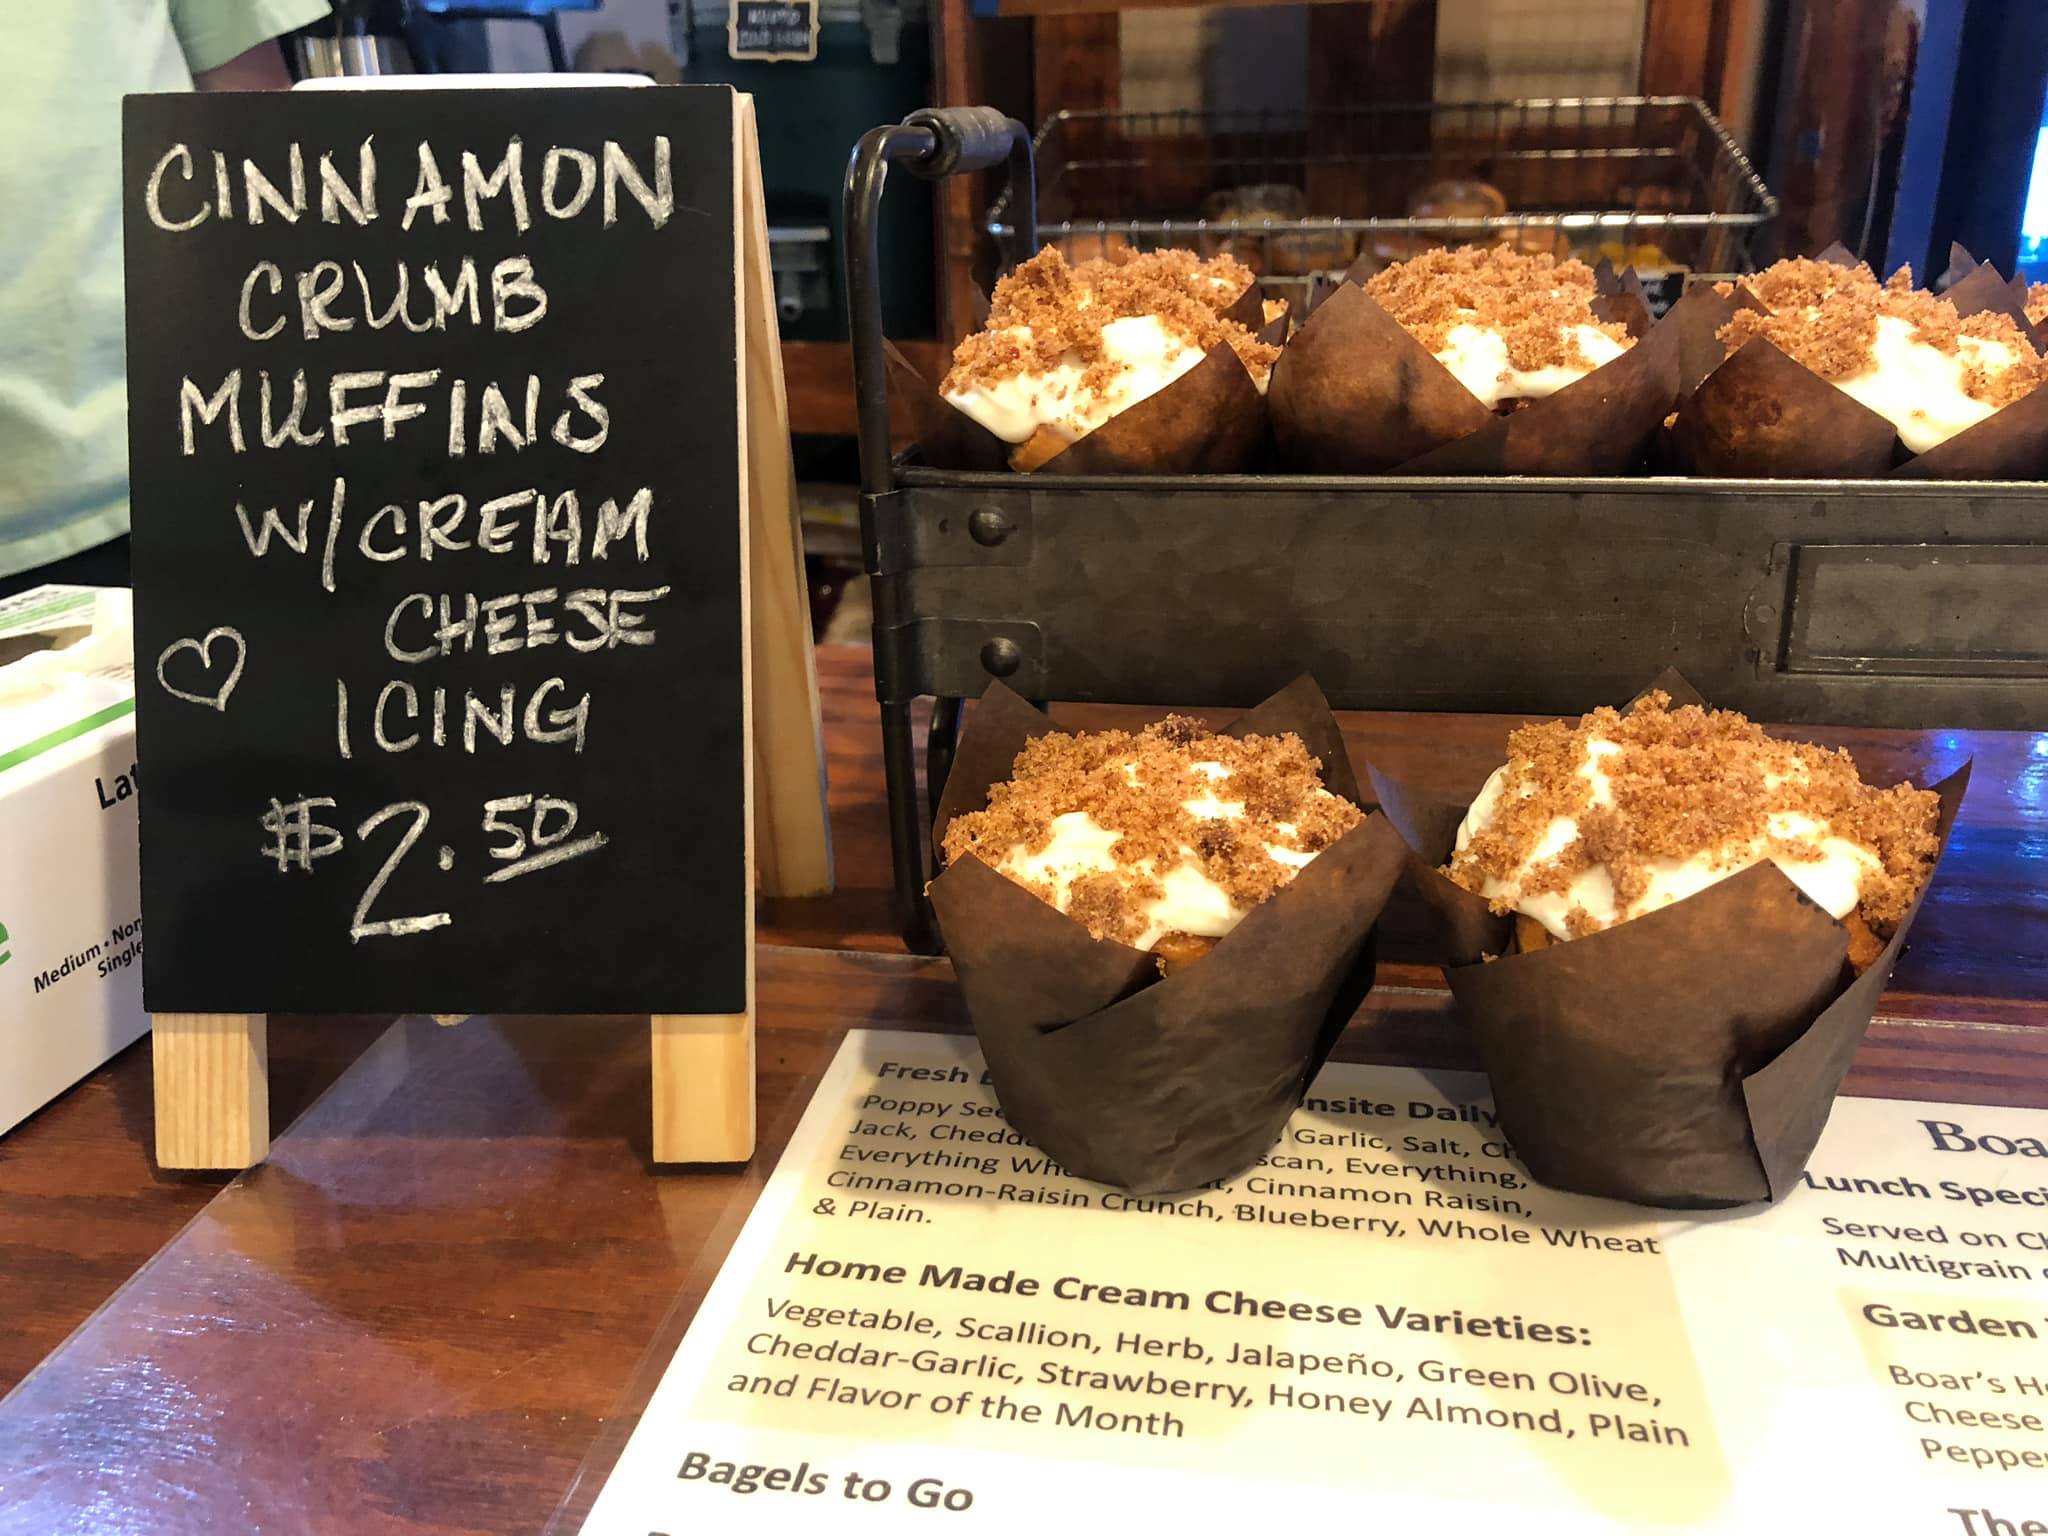 CINNAMON
CRUMB
MUFFINS
W/CREAM
CHEESE
ICING
$2.50
Medium
Single
Fresh
Onsite Daily
Poppy
Garlic, Salt,
Jack,
Everything
Everything,
Cinnamon Raisin,
Cinnamon-Raisin Crunch, Blueberry, Whole Wheat
& Plain.
Home Made Cream Cheese Varieties:
Vegetable, Scallion, Herb, Jalapeño, Green Olive,
Cheddar-Garlic, Strawberry, Honey Almond, Plain
and Flavor of the Month
Bagels to Go
Boa
Lunch Speci
Served on
Multigrain
Garden
Boar's
Cheese
Peppe
The